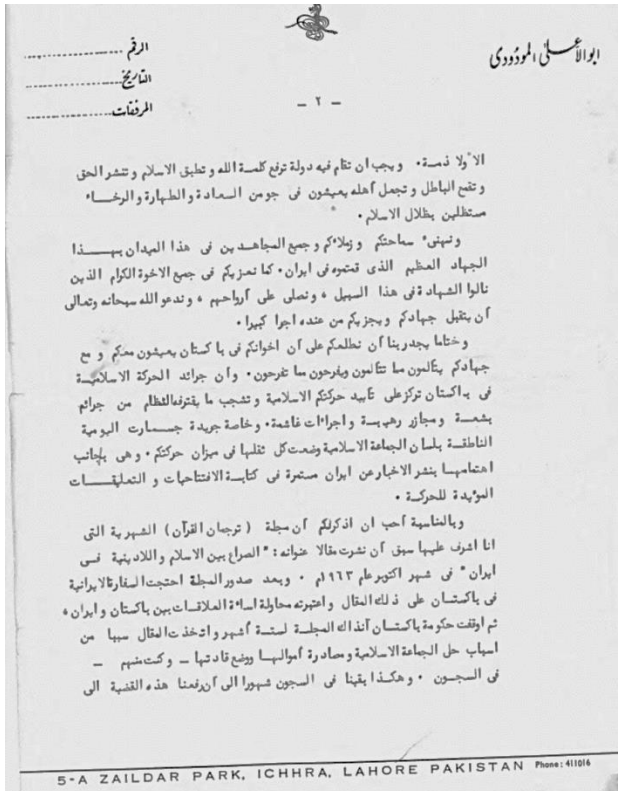 ابو الأعلى المودودى
الرقم ....................
التاريخ ....................
المرفقات ....................
- ٢ -
الأولا ذمة. ويجب ان تقام فيه دولة ترفع كلمة الله وتطبق الاسلام وتنشر الحق
وتقمع الباطل وتجعل أهله يعيشون فى جو من السعادة والطهارة والرخاء
مستظلين بظلال الاسلام.
ونهنىء سماحتكم وزملاءكم وجميع المجاهدين فى هذا الميدان بهذا
الجهاد العظيم الذى قمتموه فى ايران. كما نعزيكم فى جميع الاخوة الكرام الذين
نالوا الشهادة فى هذا السبيل، ونصلى على أرواحهم، وندعو الله سبحانه وتعالى
أن يتقبل جهادكم ويجزيكم من عنده اجرا كبيرا.
وختاما يجدر بنا أن نطلعكم على أن اخوانكم فى باكستان يعيشون معكم ومع
جهادكم يتألمون مما تتألمون ويفرحون مما تفرحون. وأن جرائد الحركة الاسلامية
فى باكستان تركز على تأييد حركتكم الاسلامية وتشجب ما يقترفه النظام من جرائم
بشعة ومجازر رهيبة واجراءات غاشمة. وخاصة جريدة جسارت اليومية
الناطقة بلسان الجماعة الاسلامية وضعت كل ثقلها فى ميزان حركتكم. وهى بجانب
اهتمامها بنشر الاخبار عن ايران مستمرة فى كتابة الافتتاحيات والتعليقات
المؤيدة للحركة.
وبالمناسبة أحب ان اذكركم أن مجلة (ترجمان القرآن) الشهرية التى
انا اشرف عليها سبق أن نشرت مقالا عنوانه: "الصراع بين الاسلام واللادينية فى
ايران" فى شهر اكتوبر عام ١٩٦٣م. وبعد صدور المجلة احتجت السفارة الايرانية
فى باكستان على ذلك المقال واعتبرته محاولة اساءة العلاقات بين باكستان وايران،
ثم اوقفت حكومة باكستان آنذاك المجلة لستة أشهر واتخذت المقال سببا من
اسباب حل الجماعة الاسلامية ومصادرة أموالها ووضع قادتها - وكنت منهم -
فى السجون. وهكذا بقينا فى السجون شهورا الى أن رفعنا هذه القضية الى
5-A ZAILDAR PARK, ICHHRA, LAHORE PAKISTAN Phone: 411016